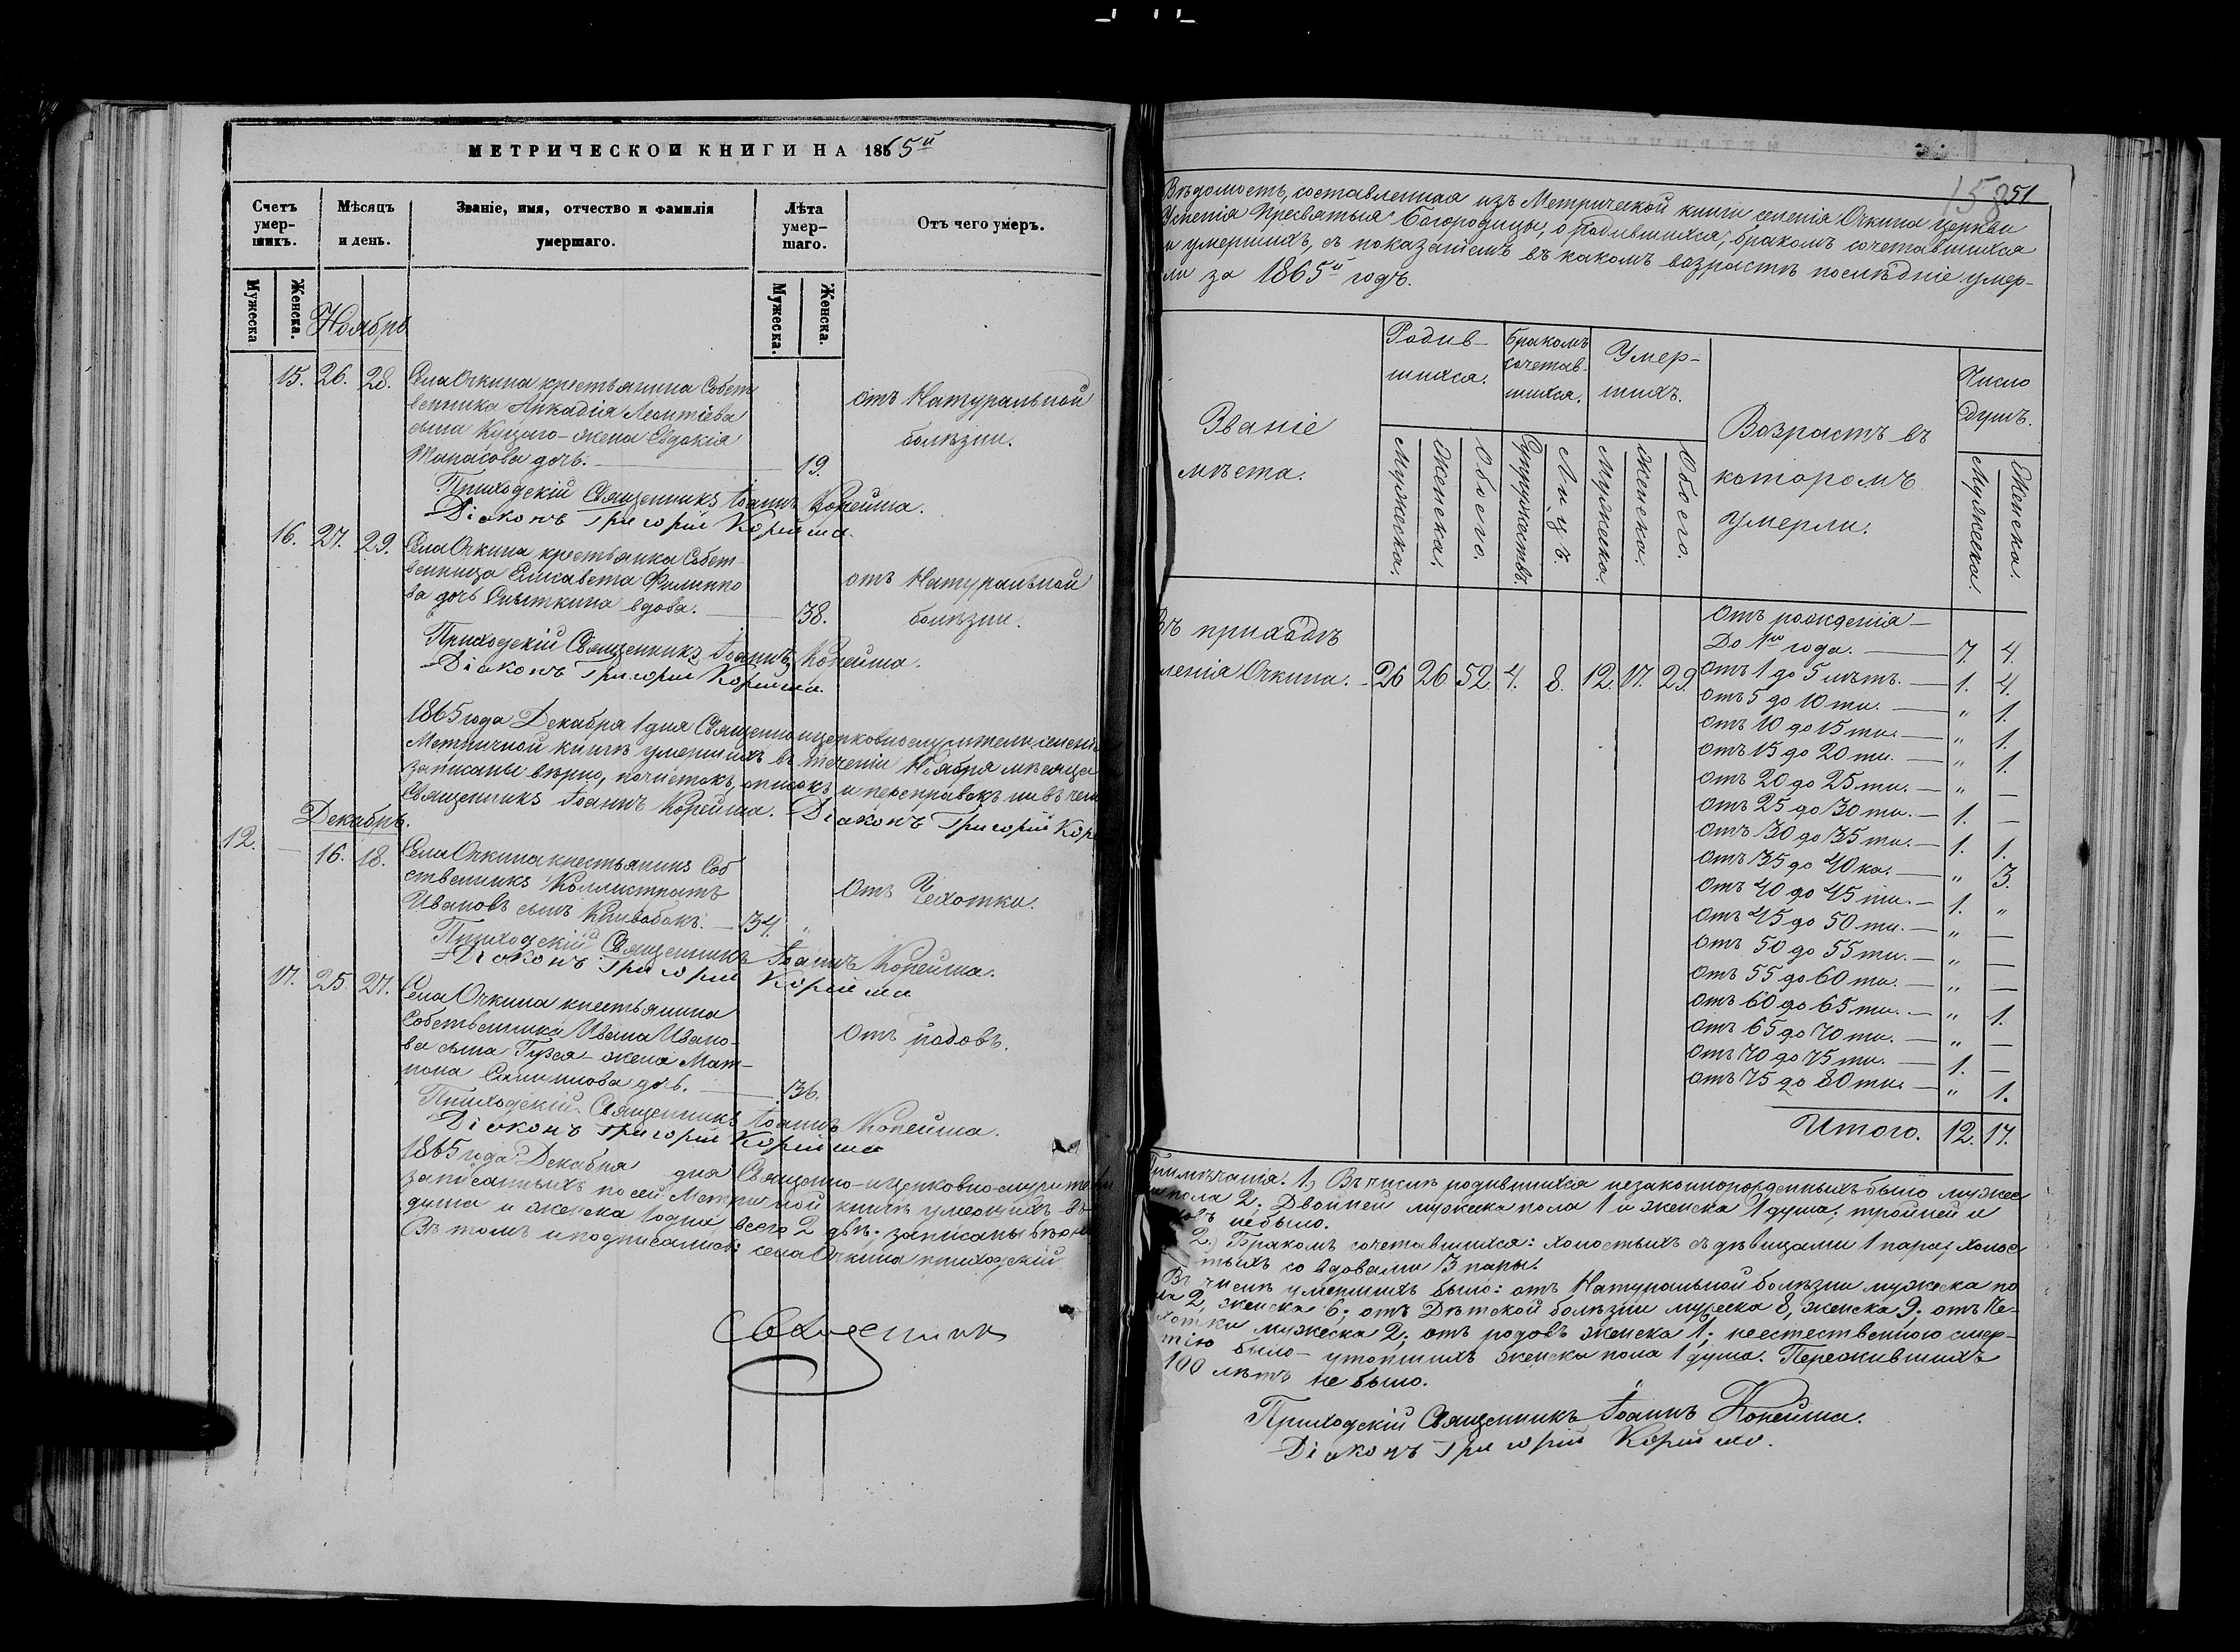 МЕТРИЧЕСКОЙ КНИГИ НА 1865й
Счетъ умер-шихъ.
Мѣсяцъ и день.
Званіе, имя, отчество и фамилія умершаго.
Лѣта умер-шаго.
Отъ чего умеръ.
Мужеска
Женска.
Мужеска.
Женска.
Ноябрь
15. 26. 28. Села Очкина крестьянина Собст
венника Аркадія Леонтіева
сына Куцаго - жена Евдокія
Танасова дочь. — 19.
отъ Натуральной
болѣзни.
Приходскій Священникъ Іоаннъ Корейша.
Діаконъ Григорій Корейша.
16. 27. 29. Села Очкина крестьянка Собст-
венница Елисавета Филиппо
ва дочь Сныткина вдова. — 38.
отъ Натуральной
болѣзни.
Приходскій Священникъ Іоаннъ Корейша.
Діаконъ Григорій Корейша.
1865 года Декабря 1 дня Священноицерковнослужители селенія
Метричной книгѣ умершихъ въ теченіи Ноября мѣсяца
записаны вѣрно, почистокъ, описокъ и переправокъ ни въ чем
Священникъ Іоаннъ Корейша. Діаконъ Григорій Кор
Декабрь.
12. — 16. 18. Села Очкина крестьянинъ Соб
ственникъ Каллистратъ
Ивановъ сынъ Кривобокъ. — 34. "
Отъ Чехотки.
Приходскій Священникъ Іоаннъ Корейша.
Діаконъ Григорій Корейша
17. 25. 27. Села Очкина крестьянина
Собственника Ивана Ивано-
ва сына Гузея - жена Мат-
рона дочь. — 36.
Отъ родовъ.
Приходскій Священникъ Іоаннъ Корейша.
Діаконъ Григорій Корейша
1865 года Декабря дня Священно-ицерковно-служители
записанныхъ по сей Метричной книгѣ умершихъ въ
душа и женска 1 одна всего 2 двѣ; записаны вѣрно
Въ томъ и подписались: села Очкина приходскій
Священник
158
51
Вѣдомость, составленная изъ Метрической книги селенія Очкина церкви
Успенія Пресвятыя Богородицы, о родившихся, бракомъ сочетавшихся
и умершихъ, съ показаніемъ въ какомъ возрастѣ послѣдніе умер-
ли за 1865й годъ.
Званіе
мѣста.
Родив-
шихся.
Бракомъ
сочетав-
шихся.
Умер-
шихъ.
Возрастъ въ
которомъ
умерли.
Число
душъ.
Мужеска.
Женска.
Обоего.
Супружествъ.
Лицъ.
Мужеска.
Женска.
Обоего.
Мужеска.
Женска.
Въ приходѣ
селенія Очкина. 26 26 52. 4. 8. 12. 17. 29.
Отъ рожденія —
До 1го года. — 7. 4.
отъ 1 до 5 лѣтъ. — 1. 4.
отъ 5 до 10 ти. — " 1.
отъ 10 до 15 ти. — " 1.
отъ 15 до 20 ти. — " 1.
отъ 20 до 25 ти. — " —
отъ 25 до 30 ти. — 1. —
отъ 30 до 35 ти. — 1. 1.
отъ 35 до 40 ка. — " 3.
отъ 40 до 45 ти. — 1. "
отъ 45 до 50 ти. — " —
отъ 50 до 55 ти. — " —
отъ 55 до 60 ти. — " —
отъ 60 до 65 ти. — " 1.
отъ 65 до 70 ти. — " —
отъ 70 до 75 ти. — 1. —
отъ 75 до 80 ти. — " 1.
Итого. 12. 17.
Примѣчанія. 1.) Въ числѣ родившихся незаконнорожденныхъ было мужес
ка пола 2; Двойней мужска пола 1 и женска 1 душа; тройней и
небыло.
2.) Бракомъ сочетавшихся: холостыхъ съ дѣвицами 1 пара; холос
тыхъ со вдовами 3 пары.
Въ числѣ умершихъ было: отъ Натуральной болѣзни мужеска по
ла 2, женска 6; отъ Дѣтской болѣзни мужеска 8, женска 9; отъ Че-
хотки мужеска 2; отъ родовъ женска 1; неестественною смер-
тію было - утопшихъ женска пола 1 душа. Пережившихъ
100 лѣтъ не было.
Приходскій Священникъ Іоаннъ Корейша.
Діаконъ Григорій Корейша.